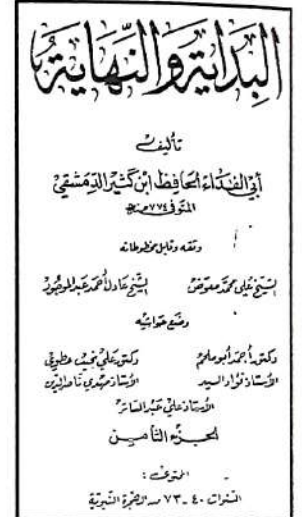 البداية والنهاية
تأليف
أبي الفداء الحافظ ابن كثير الدمشقي
المتوفى ٧٧٤ هـ
وثقه وقابل مخطوطاته
الشيخ علي محمد معوض الشيخ عادل أحمد عبد الموجود
وضع حواشيه
دكتور أحمد أبو ملحم دكتور علي نجيب عطوي
الأستاذ فؤاد السيد الأستاذ مهدي ناصر الدين
الأستاذ علي عبد الساتر
الجزء الثامن
المحتوى :
السنوات ٤٠ - ٧٣ من الهجرة النبوية